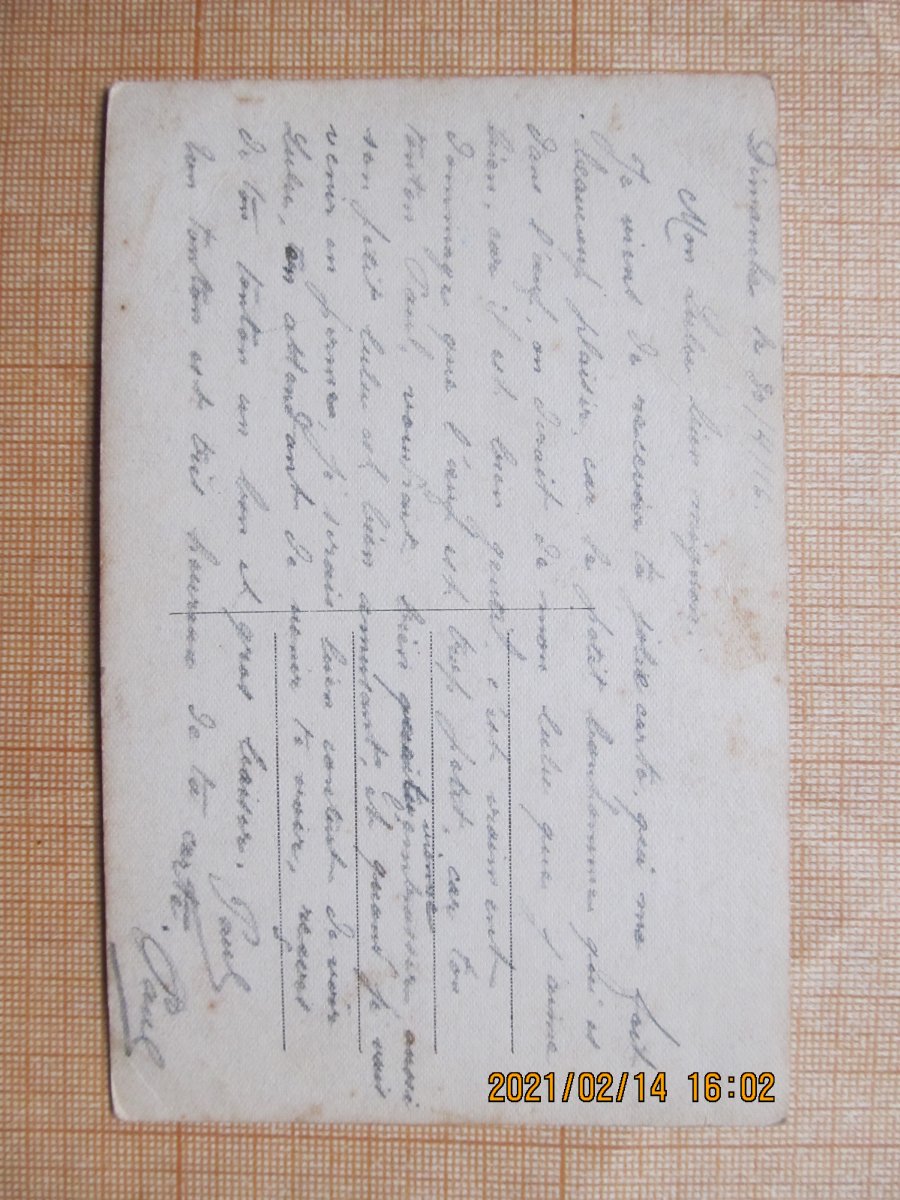 Dimanche le 30/4/16.
Mon Lulu bien mignon.
Je vient de recevoir ta jolie carte, qui me fait
beaucoup plaisir, car le petit bonhomme qui es
dans l'œuf, on dirait de mon lulu que j'aime
bien, car il est bien gentil, c'est vraiment
dommage que l'œuf est trop petit, car ton
tonton Paul, voudrait bien venir embrasser aussi
son petit lulu est bien amusant, et quand je vais
venir en perme, je serais bien content de voir
Lulu, en attendant de venir te voir, reçois
de ton tonton un bon et gros baiser. Paul
ton tonton est très heureux de ta carte.
Paul
2021/02/14 16:02